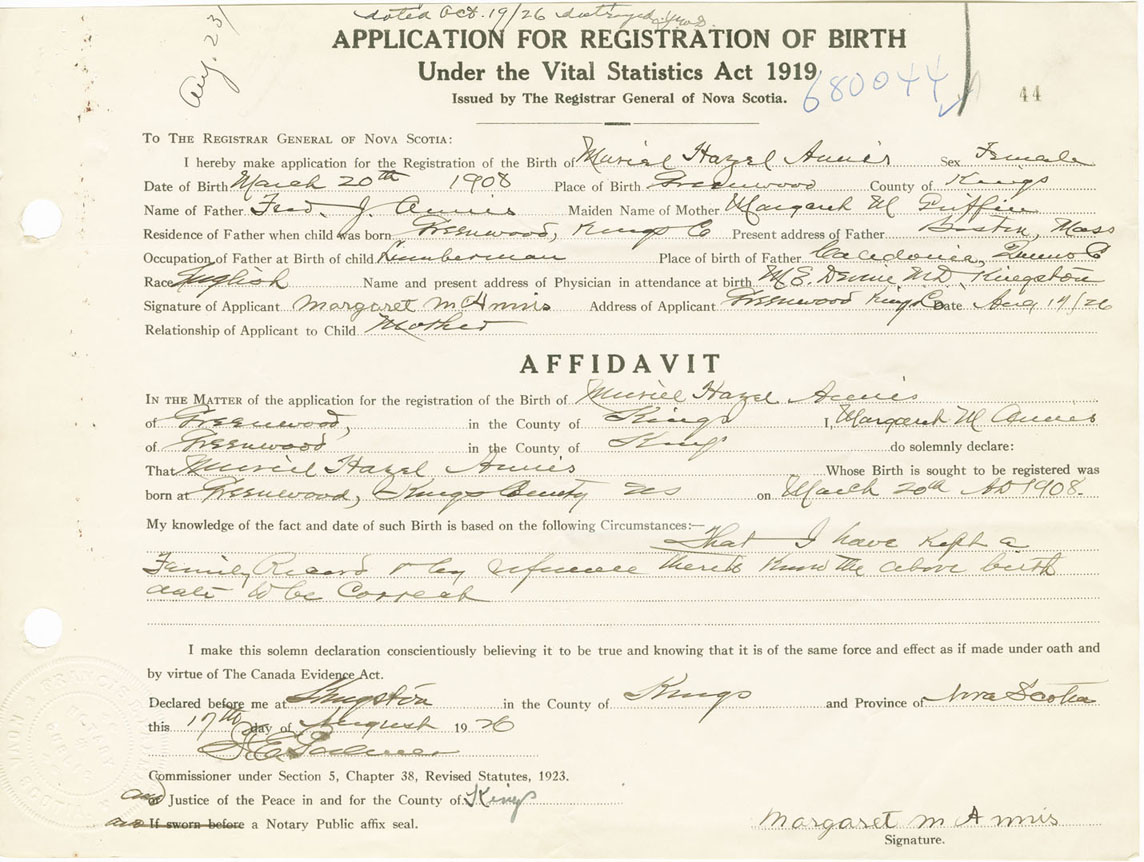 dated Oct. 19/26 destroyed
Aug. 23/
APPLICATION FOR REGISTRATION OF BIRTH
Under the Vital Statistics Act 1919
680044
Issued by The Registrar General of Nova Scotia.
44
To The Registrar General of Nova Scotia:
I hereby make application for the Registration of the Birth of Muriel Hazel Annis Sex Female
Date of Birth March 20th 1908 Place of Birth Greenwood County of Kings
Name of Father Fred. J. Annis Maiden Name of Mother Margaret M Griffin
Residence of Father when child was born Greenwood, Kings Co Present address of Father Boston, Mass
Occupation of Father at Birth of child Lumberman Place of birth of Father Caledonia, Queens Co
Race English Name and present address of Physician in attendance at birth M.D. Kingston
Signature of Applicant Margaret M Annis Address of Applicant Greenwood Kings Co Date Aug 17/26
Relationship of Applicant to Child Mother
AFFIDAVIT
In the Matter of the application for the registration of the Birth of Muriel Hazel Annis
of Greenwood, in the County of Kings I, Margaret M. Annis
of Greenwood in the County of Kings do solemnly declare:
That Muriel Hazel Annis Whose Birth is sought to be registered was
born at Greenwood, Kings County NS on March 20th AD 1908.
My knowledge of the fact and date of such Birth is based on the following Circumstances:—
That I have kept a
Family Record & by reference thereto know the above birth
date to be correct
I make this solemn declaration conscientiously believing it to be true and knowing that it is of the same force and effect as if made under oath and
by virtue of The Canada Evidence Act.
Declared before me at Kingston in the County of Kings and Province of Nova Scotia
this 17th day of August 1926
Commissioner under Section 5, Chapter 38, Revised Statutes, 1923.
and Justice of the Peace in and for the County of Kings
and If sworn before a Notary Public affix seal.
Margaret M Annis
Signature.